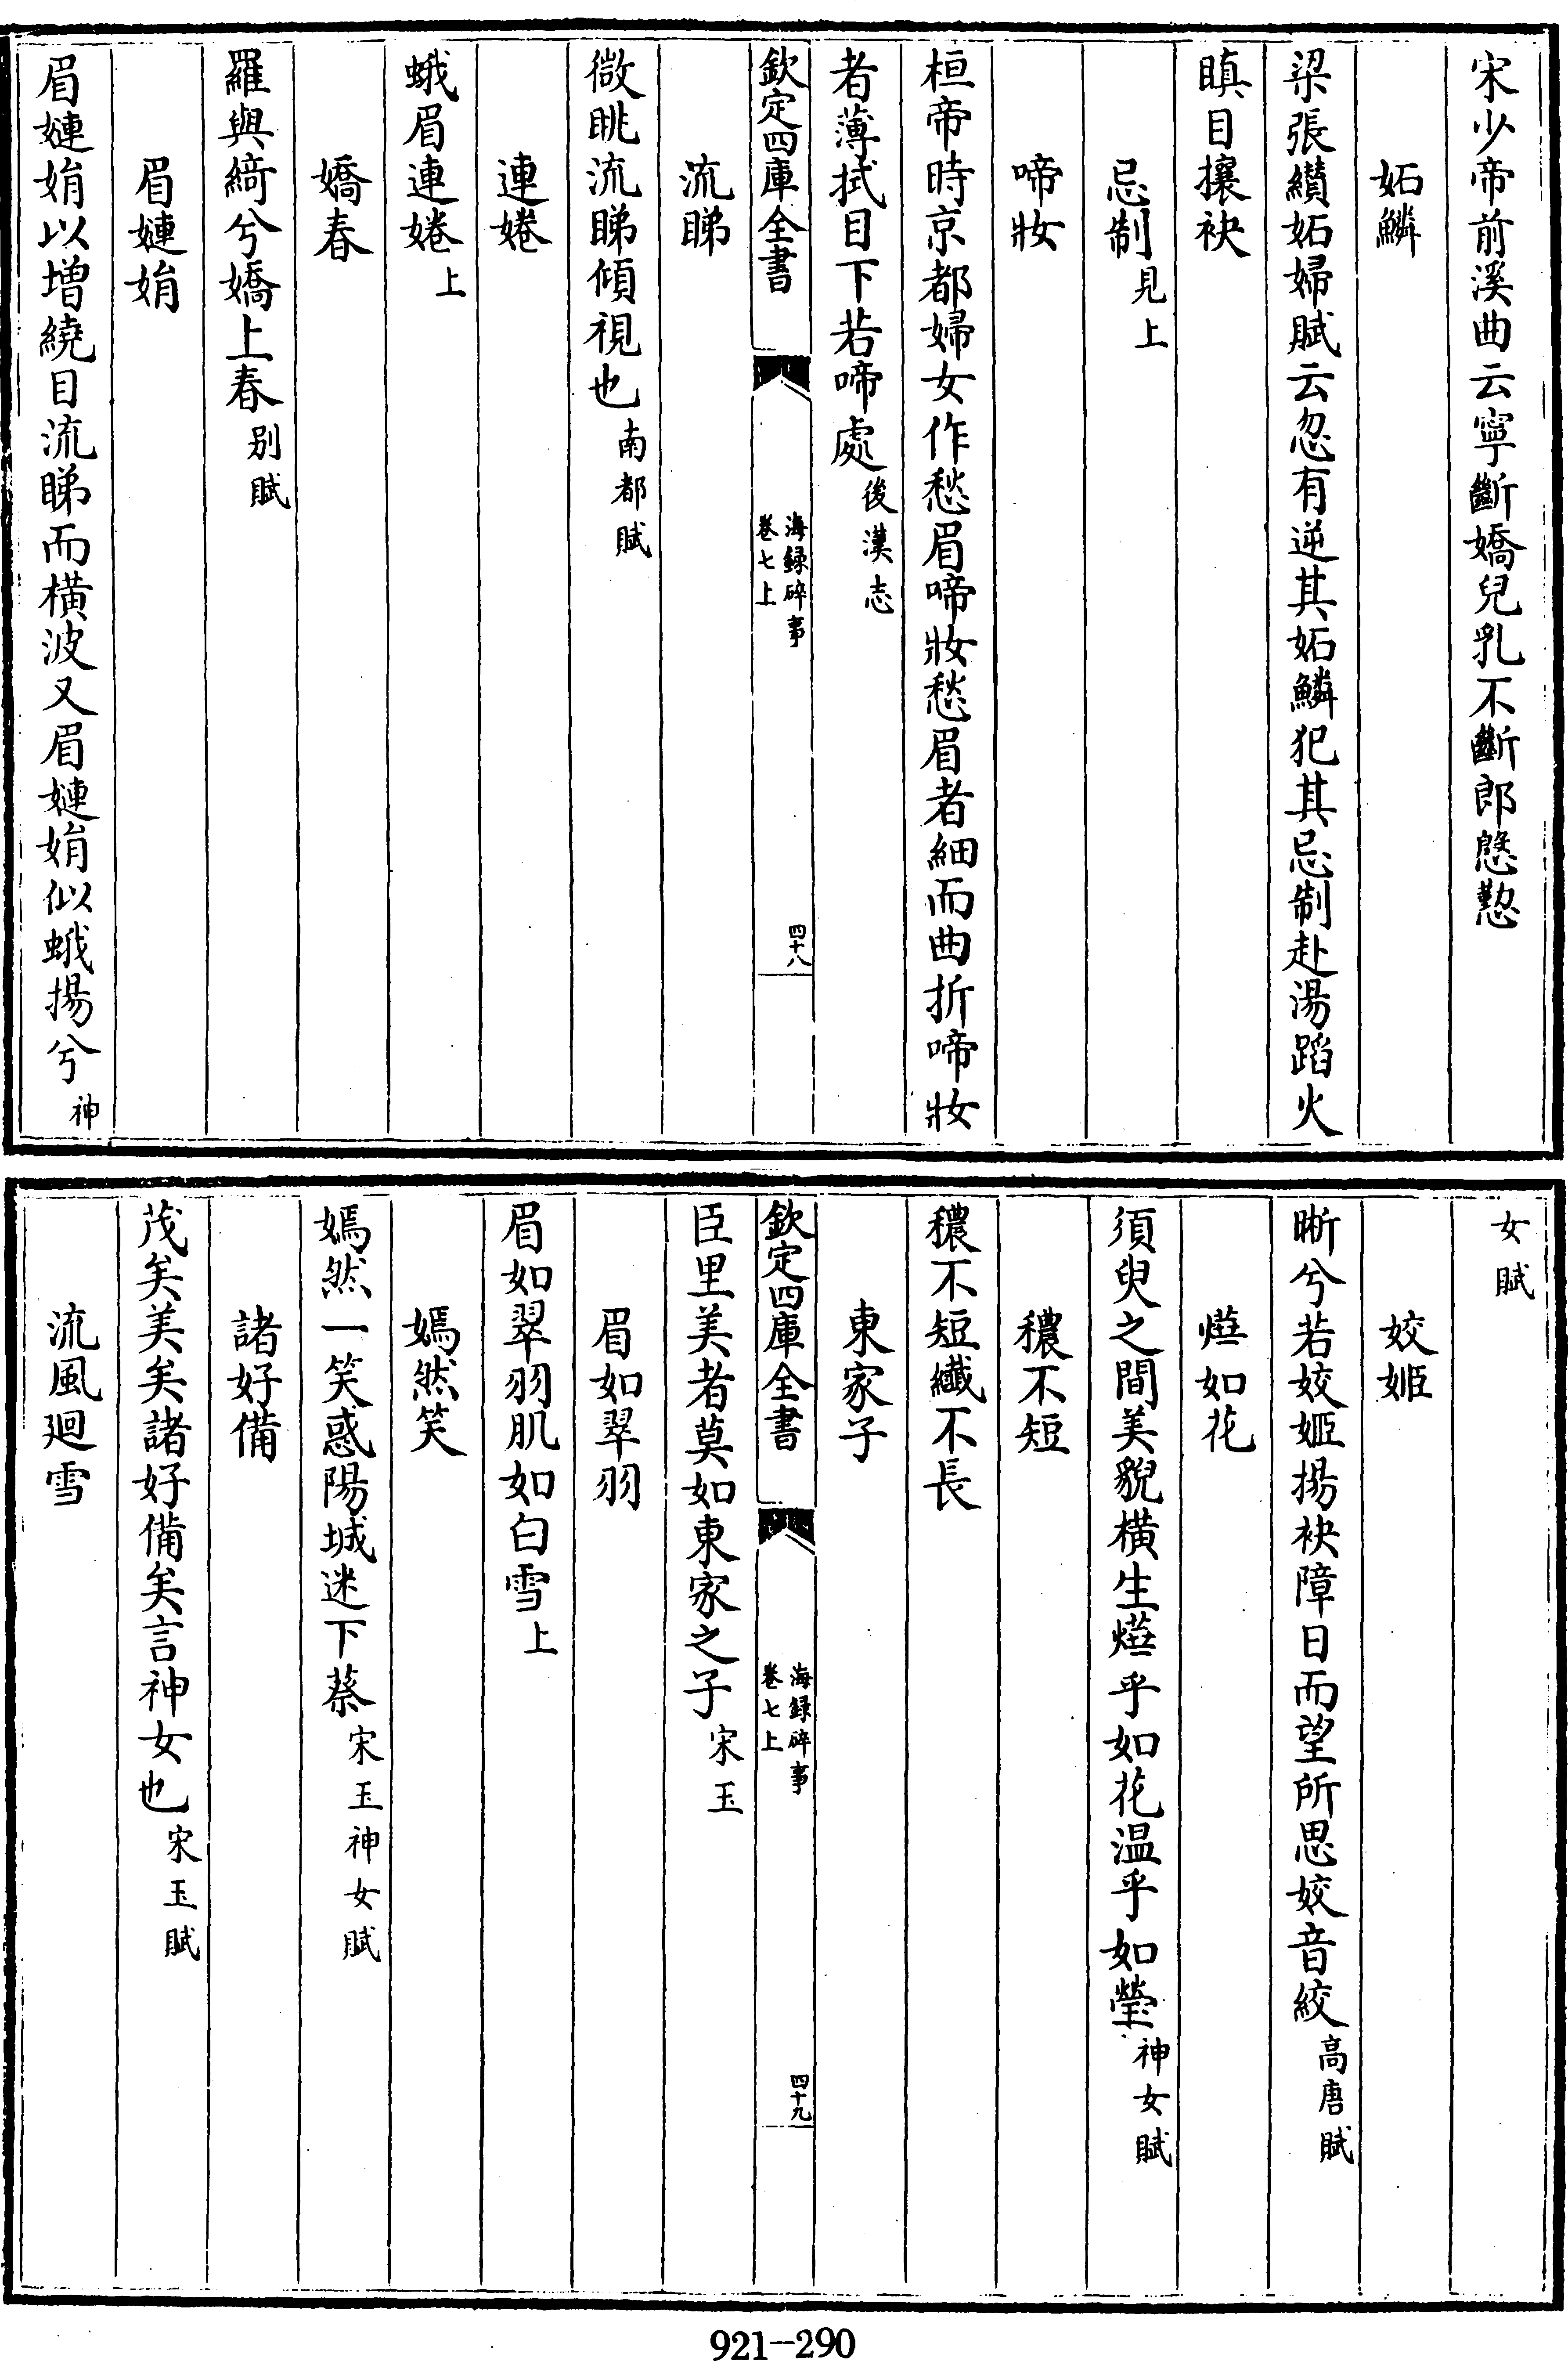 宋少帝前溪曲云寧斷嬌兒乳不斷郎慇懃
妬鱗
梁張纘妬婦賦云忽有逆其妬鱗犯其忌制赴湯蹈火
瞋目攘袂
忌制見上
啼妝
桓帝時京都婦女作愁眉啼妝愁眉者細而曲折啼妝
者薄拭目下若啼處後漢志
欽定四庫全書
海録碎事
卷七上
四十八
流睇
微眺流睇傾視也南都賦
連婘
蛾眉連婘上
嬌春
羅與綺兮嬌上春别賦
眉嫥娟
眉嫥娟以増繞目流睇而橫波又眉嫥娟似蛾揚兮神
女賦
姣姬
晰兮若姣姬揚袂障日而望所思姣音絞高唐賦
燁如花
須臾之間美貌橫生燁乎如花温乎如瑩神女賦
穠不短
穠不短纎不長
東家子
欽定四庫全書
海録碎事
卷七上
四十九
臣里美者莫如東家之子宋玉
眉如翠羽
眉如翠羽肌如白雪上
嫣然笑
嫣然一笑惑陽城迷下蔡宋玉神女賦
諸好備
茂矣美矣諸好備矣言神女也宋玉賦
流風廻雪
921-290